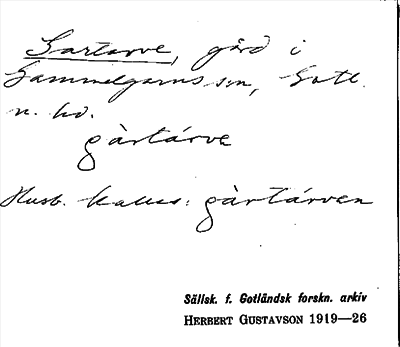 Gartarve, gård i
Gammelgarns sn, Gotl.
n. hd.
gàrtárve
Husb. kallas: gàrtárven
Sällsk. f. Gotländsk forskn. arkiv
HERBERT GUSTAVSON 1919—26